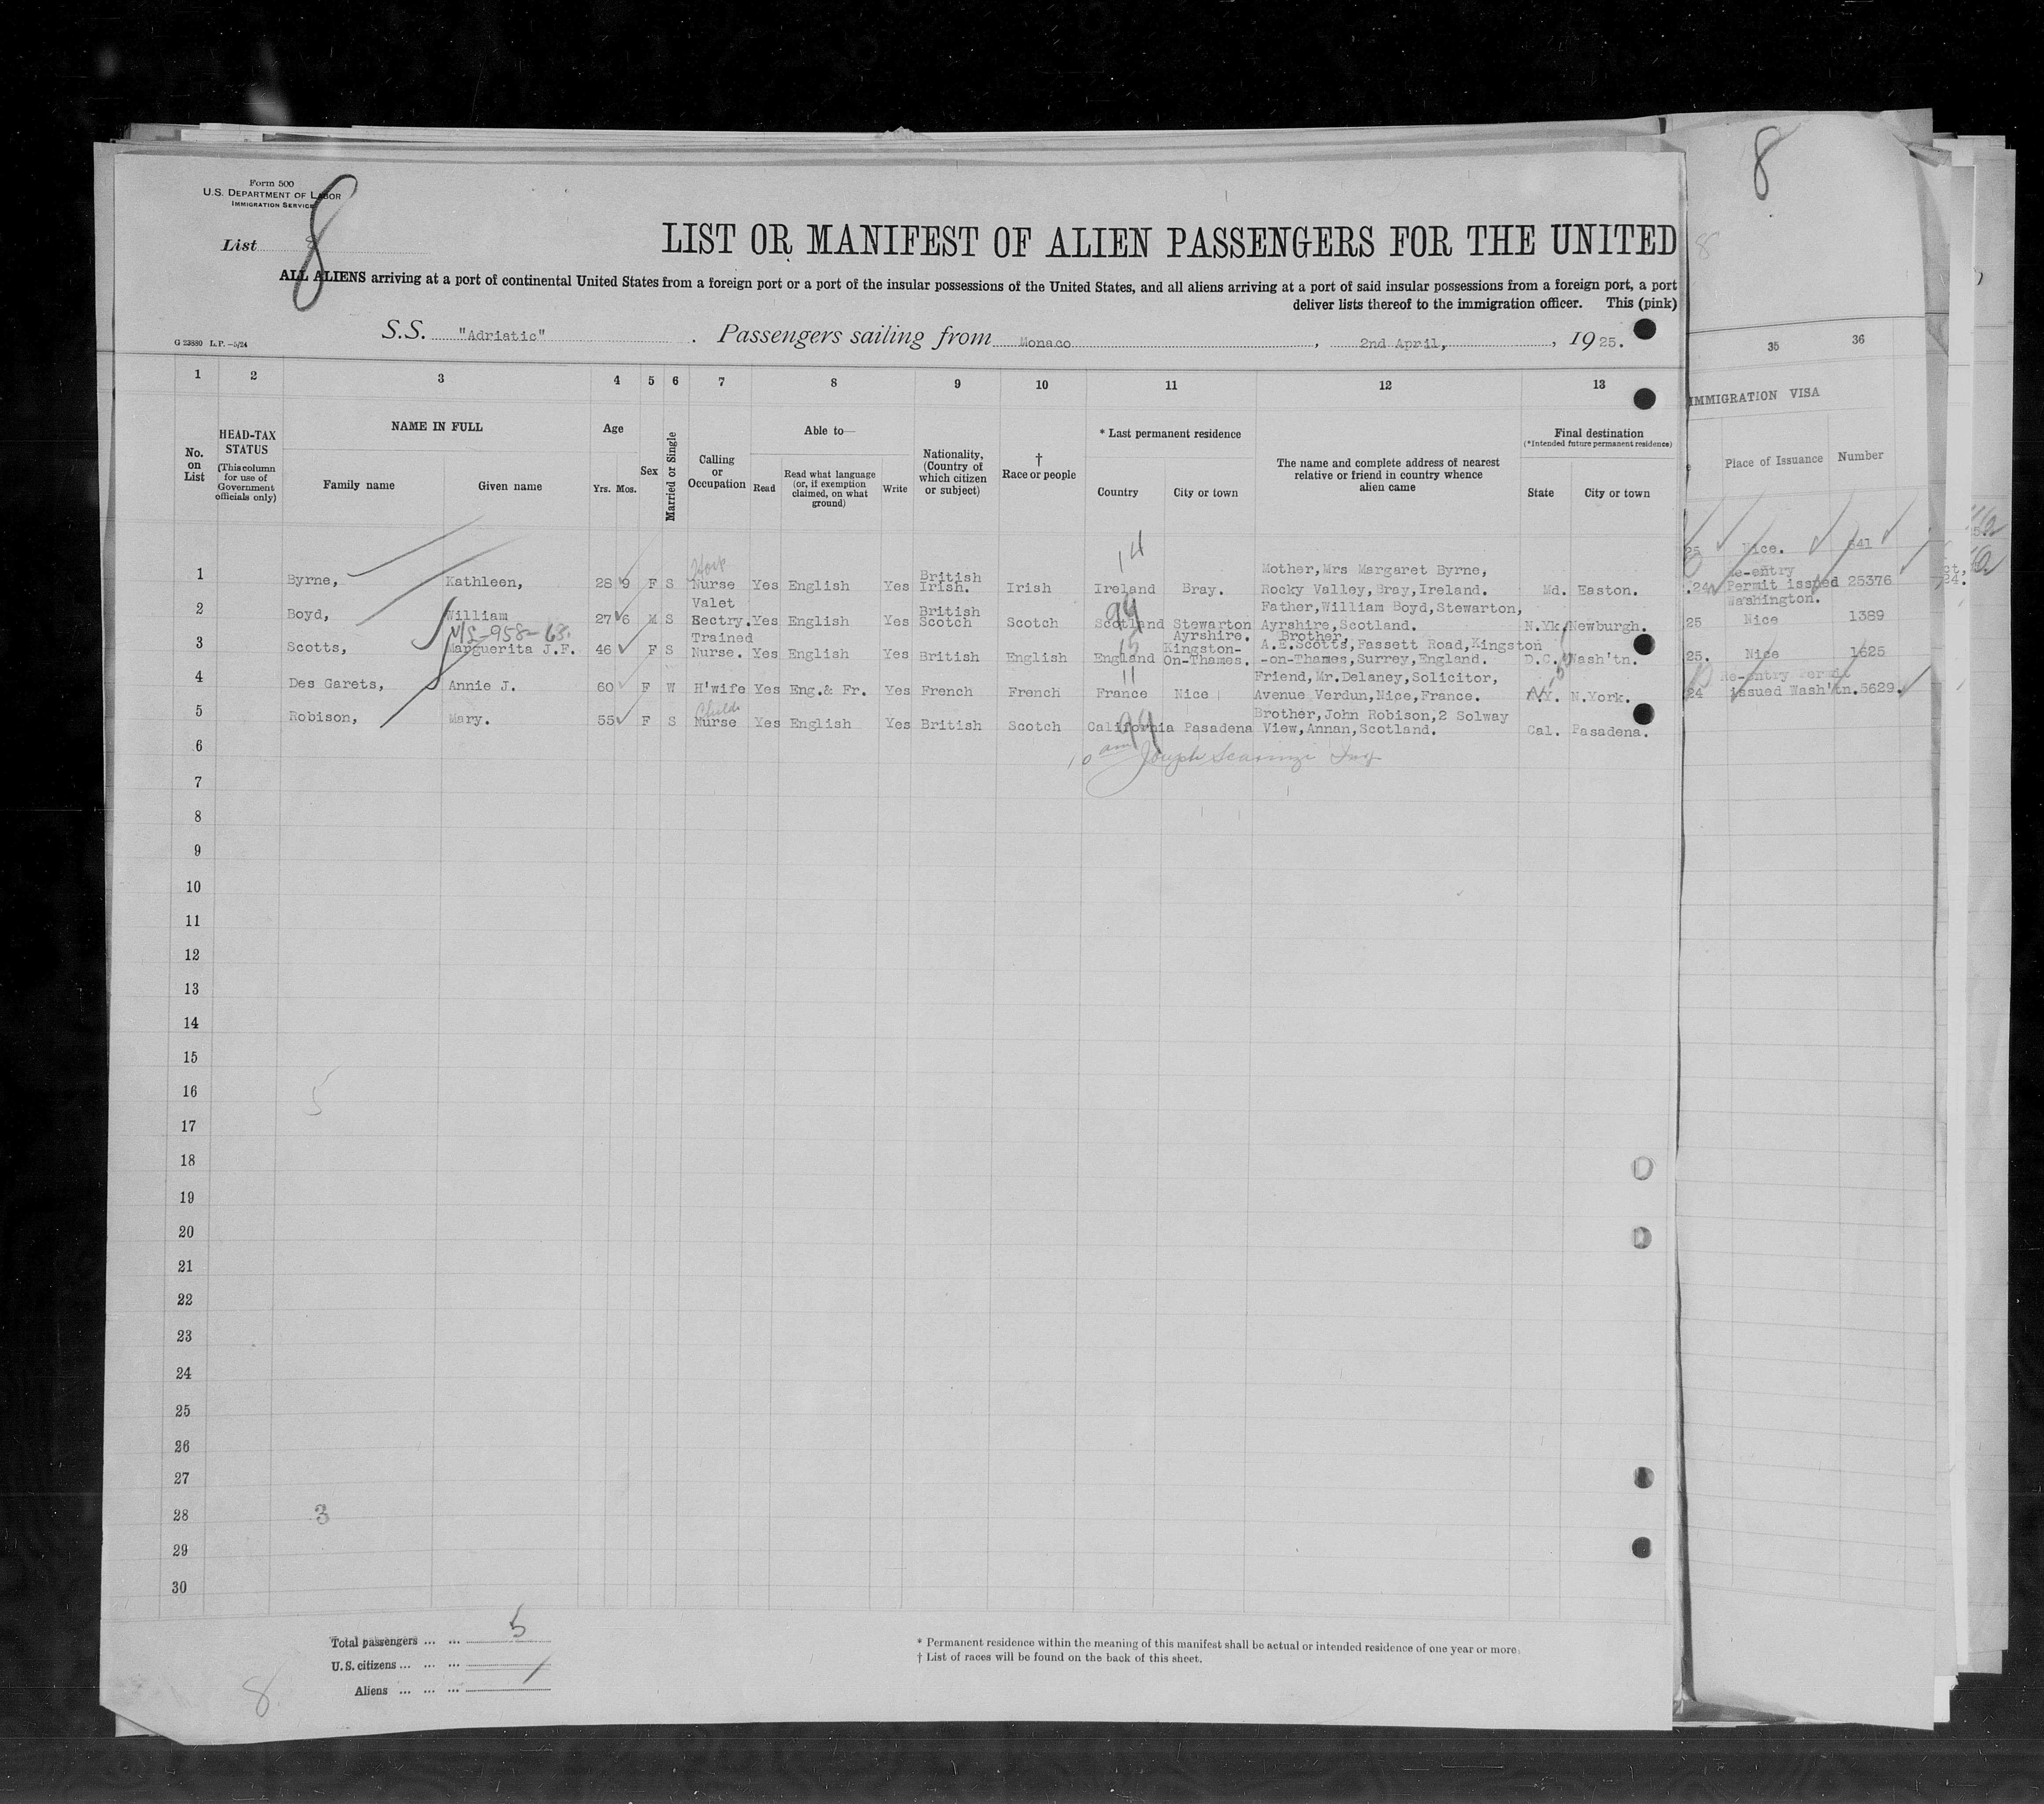 Form 500
U.S. DEPARTMENT OF LABOR
IMMIGRATION SERVICE
8
8
List 8
8
LIST OR MANIFEST OF ALIEN PASSENGERS FOR THE UNITED
ALL ALIENS arriving at a port of continental United States from a foreign port or a port of the insular possessions of the United States, and all aliens arriving at a port of said insular possessions from a foreign port, a port
deliver lists thereof to the immigration officer. This (pink)
G 23880 L.P.—5/24
S.S. "Adriatic" . Passengers sailing from Monaco , 2nd April, , 1925.
1 2 3 4 5 6 7 8 9 10 11 12 13 35 36
IMMIGRATION VISA
No. on List
HEAD-TAX STATUS
(This column for use of Government officials only)
NAME IN FULL
Family name Given name
Age
Yrs. Mos.
Sex
Married or Single
Calling or Occupation
Able to—
Read
Read what language (or, if exemption claimed, on what ground)
Write
Nationality, (Country of which citizen or subject)
† Race or people
* Last permanent residence
Country City or town
The name and complete address of nearest relative or friend in country whence alien came
Final destination
(*Intended future permanent residence)
State City or town
Place of Issuance Number
14
1 Byrne, Kathleen, 28 9 F S Nurse Yes English Yes British Irish. Irish Ireland Bray. Mother, Mrs Margaret Byrne, Rocky Valley, Bray, Ireland. Md. Easton. 25 Nice. 541
2 Boyd, William 27 6 M S Valet Eectry. Yes English Yes British Scotch Scotch Scotland Stewarton Ayrshire. Father, William Boyd, Stewarton, Ayrshire, Scotland. N.Yk. Newburgh. .24 Re-entry Permit issued Washington. 25376
99
M/L-958-63.
15
3 Scotts, Marguerita J.F. 46 F S Trained Nurse. Yes English Yes British English England Kingston-On-Thames. Brother, A.E.Scotts, Fassett Road, Kingston-on-Thames, Surrey, England. D.C. Wash'tn. 25 Nice 1389
11
4 Des Garets, Annie J. 60 F W H'wife Yes Eng.& Fr. Yes French French France Nice Friend, Mr. Delaney, Solicitor, Avenue Verdun, Nice, France. N.Y. N.York. 25. Nice 1625
Childs
5 Robison, Mary. 55 F S Nurse Yes English Yes British Scotch California Pasadena Brother, John Robison, 2 Solway View, Annan, Scotland. Cal. Pasadena. 24 Re-entry Permit issued Wash'tn. 5629.
99
10 am Joseph
6
7
8
9
10
11
12
13
14
15
16
17
18
19
20
21
22
23
24
25
26
27
28
3
29
30
Total passengers ... ... 5
U.S. citizens ... ... ...
Aliens ... ... ...
8
* Permanent residence within the meaning of this manifest shall be actual or intended residence of one year or more.
† List of races will be found on the back of this sheet.